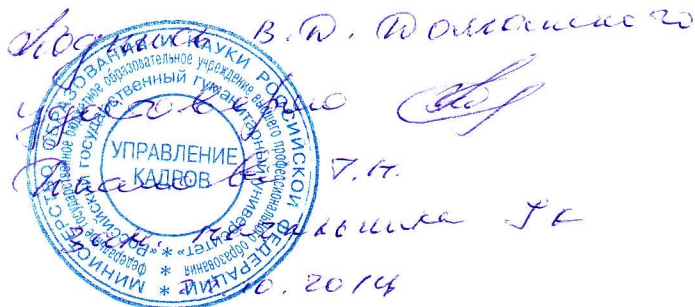 Подпись В.П.
удостоверяю
Т.Н.
зам. начальника УК
10.2014
МИНИСТЕРСТВО ОБРАЗОВАНИЯ И НАУКИ РОССИЙСКОЙ ФЕДЕРАЦИИ
федеральное государственное бюджетное образовательное учреждение высшего профессионального образования
«Российский государственный гуманитарный университет»
УПРАВЛЕНИЕ
КАДРОВ